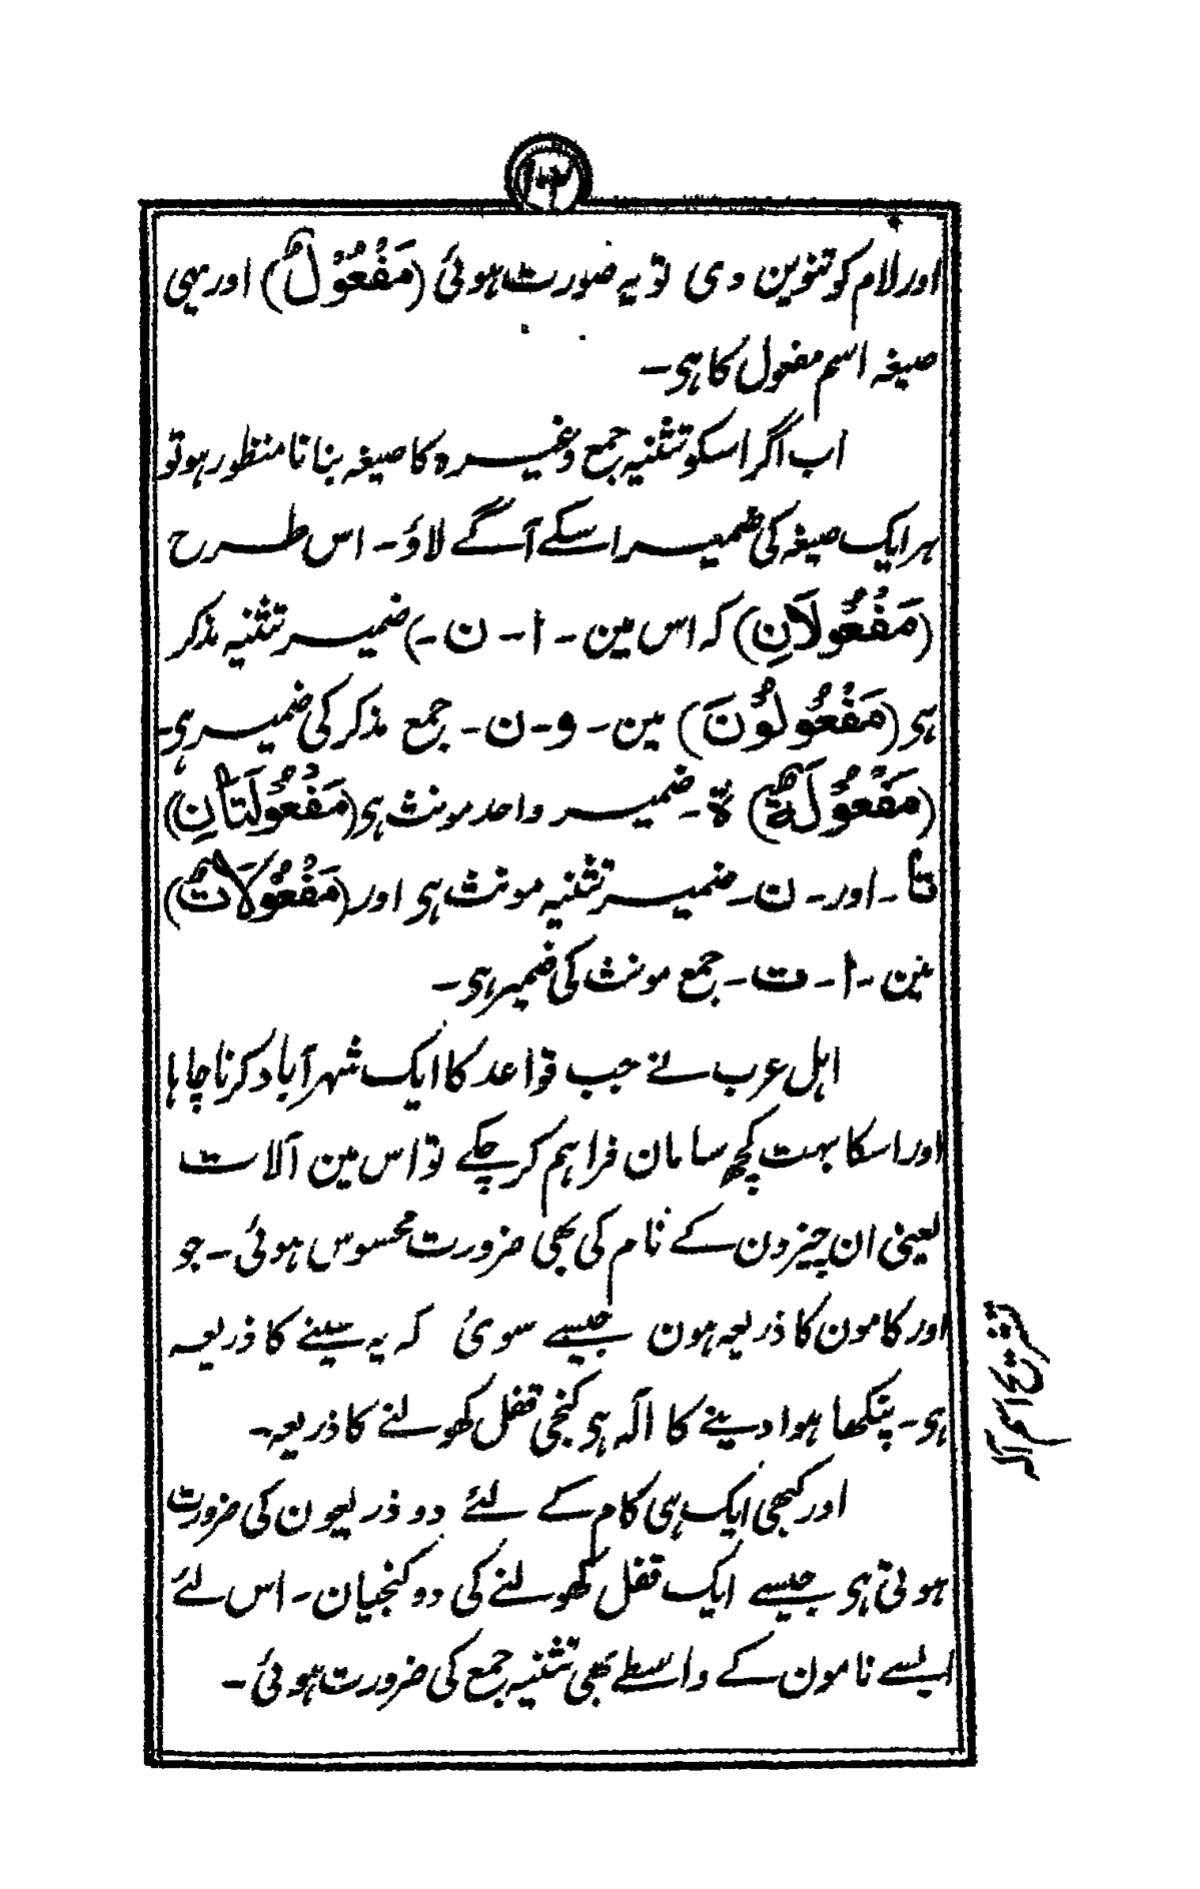 ۱۰۲
اور لام کو تنوین دی تو یہ صورت ہوئی (مَفْعُوْلٌ) اور یہی
صیغہ اسم مفعول کا ہی۔
اب اگر اسکو تثنیہ جمع وغیرہ کا صیغہ بنانا منظور ہو تو
ہر ایک صیغہ کی ضمیر اسکے آگے لاؤ۔ اس طرح
(مَفْعُولَانِ) کہ اس مین ۔ ا ۔ ن ۔) ضمیر تثنیہ مذکر
ہی (مَفْعُولُوْنَ) مین ۔ و ۔ ن ۔ جمع مذکر کی ضمیر ہی۔
(مَفْعُوْلَةٌ) ة ۔ ضمیر واحد مونث ہی (مَفْعُوْلَتَانِ)
تا ۔ اور ۔ ن ۔ ضمیر تثنیہ مونث ہی اور (مَفْعُوْلَاتٌ)
مین ۔ ا ۔ ت ۔ جمع مونث کی ضمیر ہی ۔
اہل عرب نے جب قواعد کا ایک شہر آباد کرنا چاہا
اور اسکا بہت کچھ سامان فراہم کر چکے تو اس مین آلات
یعنی ان چیزون کے نام کی بھی ضرورت محسوس ہوئی ۔ جو
اور کامون کا ذریعہ ہون جیسے سوئی کہ یہ سینے کا ذریعہ
ہی ۔ پنکھا ہوا دینے کا آلہ ہی کنجی قفل کھولنے کا ذریعہ ۔
اور کبھی ایک ہی کام کے لئے دو ذریعون کی ضرورت
ہوتی ہی جیسے ایک قفل کھولنے کی دو کنجیان ۔ اس لئے
ایسے نامون کے واسطے بھی تثنیہ جمع کی ضرورت ہوئی ۔
اسم آلہ